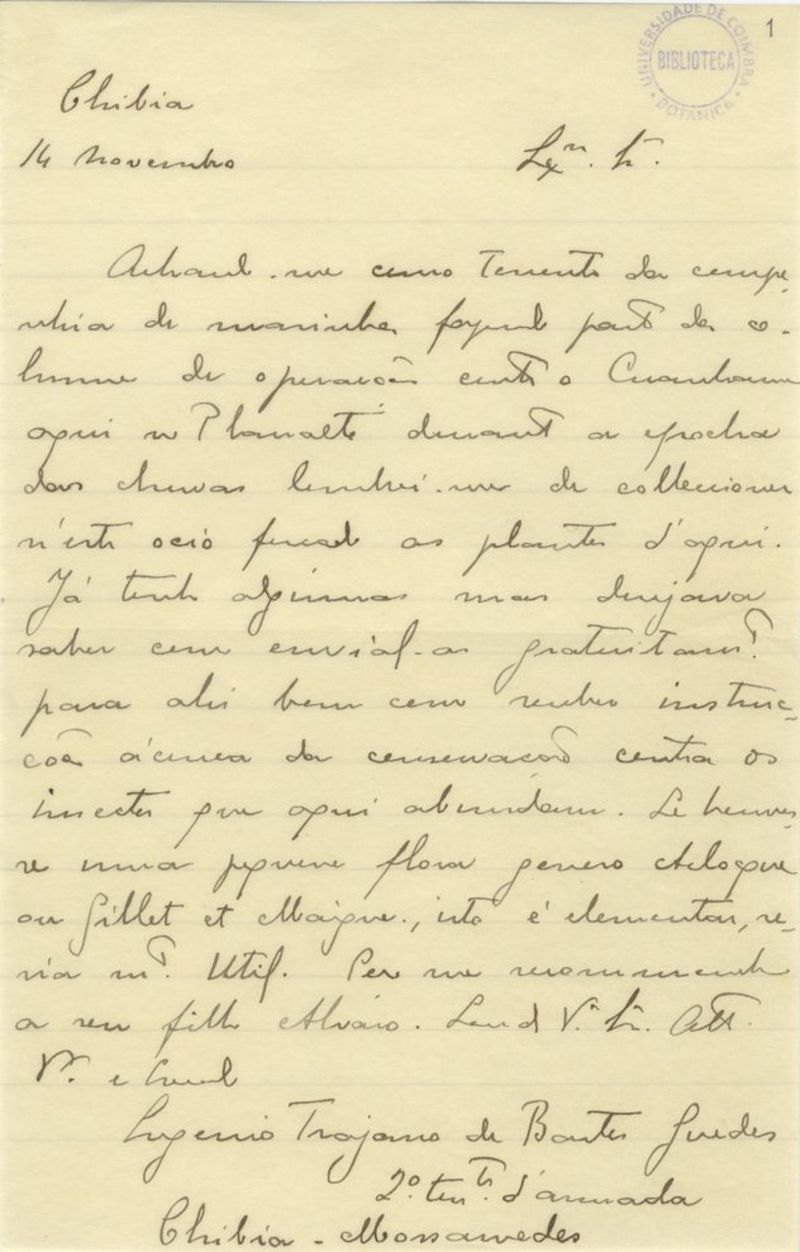 1
UNIVERSIDADE DE COIMBRA
BIBLIOTECA
BOTANICA
Chibia
14 Novembro
Exmo. Sr.
Achando-me como Tenente da compa-
nhia de marinha fazendo parte da co-
lumna de operações contra o Cuanhama
aqui no Planalto durante a epocha
das chuvas lembrei-me de colleccionar
n'este ocio forçado as plantas d'aqui.
Já tenho algumas mas desejava
saber como envial-as gratuitamte.
para ahi bem como receber instruc-
ções ácerca da conservação contra os
insectos que aqui abundam. Se houves-
se uma pequena flora genero
ou Gillet et Magne, isto é elementar, se-
ria mto. util. Peço me recommende
a seu filho Alvaro. Sou de V. Sr. Atto.
Vr. e Creado
Eugenio Trajano de Bastos Guedes
2º. tente. d'armada
Chibia - Mossamedes